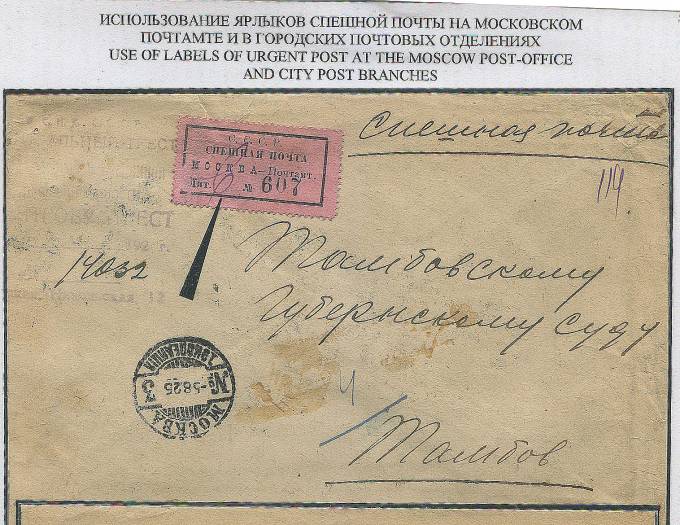 ИСПОЛЬЗОВАНИЕ ЯРЛЫКОВ СПЕШНОЙ ПОЧТЫ НА МОСКОВСКОМ
ПОЧТАМТЕ И В ГОРОДСКИХ ПОЧТОВЫХ ОТДЕЛЕНИЯХ
USE OF LABELS OF URGENT POST AT THE MOSCOW POST-OFFICE
AND CITY POST BRANCHES
Спешная почта
С.С.С.Р.
СПЕШНАЯ ПОЧТА
МОСКВА—Почтамт.
Лит. № 607
119
14032
Тамбовскому
Губернскому Суду
Тамбов
МОСКВА
№ -5825 3